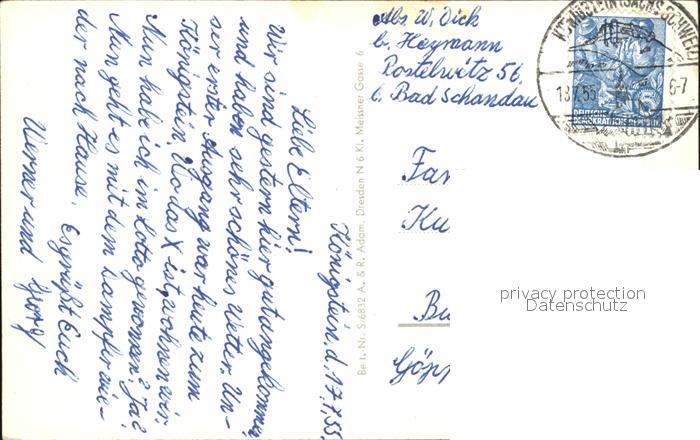 Königstein, d. 17.7.55.
Liebe Eltern!
Wir sind gestern hier gut angekommen
und haben sehr schönes Wetter. Un-
ser erster Ausgang war heute zum
Königstein. Wo das X ist, wohnen wir.
Nun habe ich im Lotto gewonnen? Ja?
Nun geht es mit dem Dampfer wie-
der nach Hause. Es grüßt Euch
Werner und Georg
Best.-Nr. S 6832 A. & R. Adam, Dresden N 6 Kl. Meissner Gasse 6
Abs. W. Dick
b. Heymann
Postelwitz 56,
b. Bad Schandau
KÖNIGSTEIN (SÄCHS. SCHWEIZ)
18.7.55
6-7
DEUTSCHE
DEMOKRATISCHE REPUBLIK
Fa
Ku
Bu
Göpp
privacy protection
Datenschutz